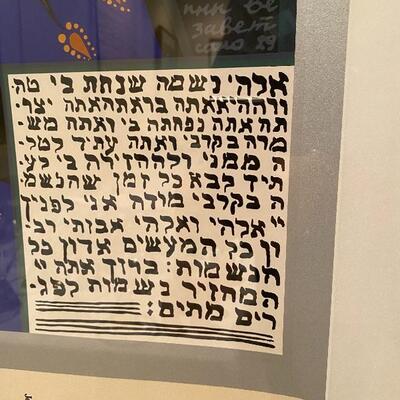 завет
אלהי נשמה שנתת בי טה-
ורה היא אתה בראתה אתה יצר-
תה אתה נפחתה בי ואתה מש-
מרה בקרבי ואתה עתיד לטל-
ה ממני ולהחזירה בי לע-
תיד לבא כל זמן שהנשמ-
ה בקרבי מודה אני לפניך
יי אלהי ואלהי אבותי רב-
ון כל המעשים אדון כל
הנשמות: ברוך אתה יי
המחזיר נשמות לפג-
רים מתים: